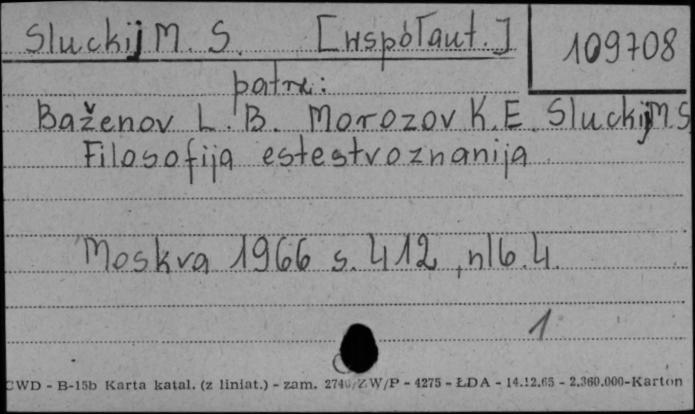 Sluckij M. S. [współaut.]
109708
patrz:
Baženov L. B. Morozov K. E. Sluckij M. S
Filosofija estestvoznanija
Moskva 1966 s. 412, nlb. 4.
1
CWD - B-15b Karta katal. (z liniat.) - zam. 2740/ZW/P - 4275 - ŁDA - 14.12.65 - 2.360.000-Karton